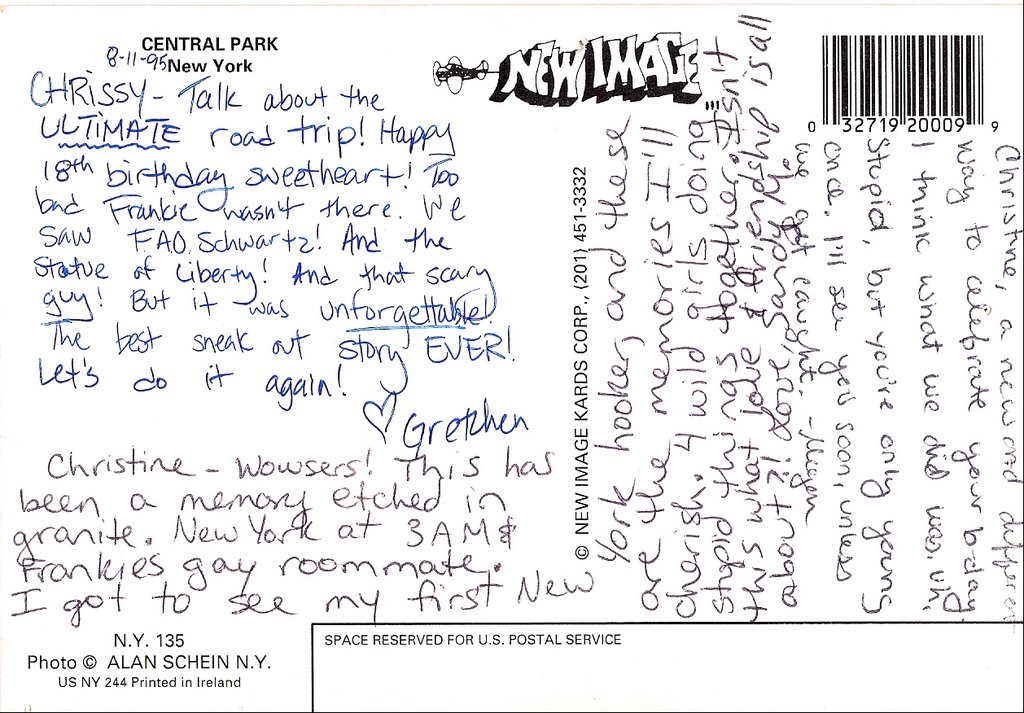 CENTRAL PARK
New York
8-11-95
CHRiSSY - Talk about the
ULTIMATE road trip! Happy
18th birthday sweetheart! Too
bad Frankie wasn't there. We
saw F.A.O. Schwartz! And the
Statue of Liberty! And that scary
guy! But it was unforgettable!
The best sneak out story EVER!
Let's do it again!
♡ Gretchen
Christine - Wowsers! This has
been a memory etched in
granite. New York at 3 AM &
Frankies gay roommate.
I got to see my first New
York hooker, and these
are the memories I'll
cherish. 4 wild girls doing
stupid things together. Isn't
this what love & friendship is all
about?! Love, Sandy M.
Christine, a new and differen
way to celebrate your b-day.
I think what we did was uh,
Stupid, but you're only young
once. I'll see you soon, unless
we get caught. - Megan
NEW IMAGE
0 32719 20009 9
© NEW IMAGE KARDS CORP., (201) 451-3332
N.Y. 135
Photo © ALAN SCHEIN N.Y.
US NY 244 Printed in Ireland
SPACE RESERVED FOR U.S. POSTAL SERVICE